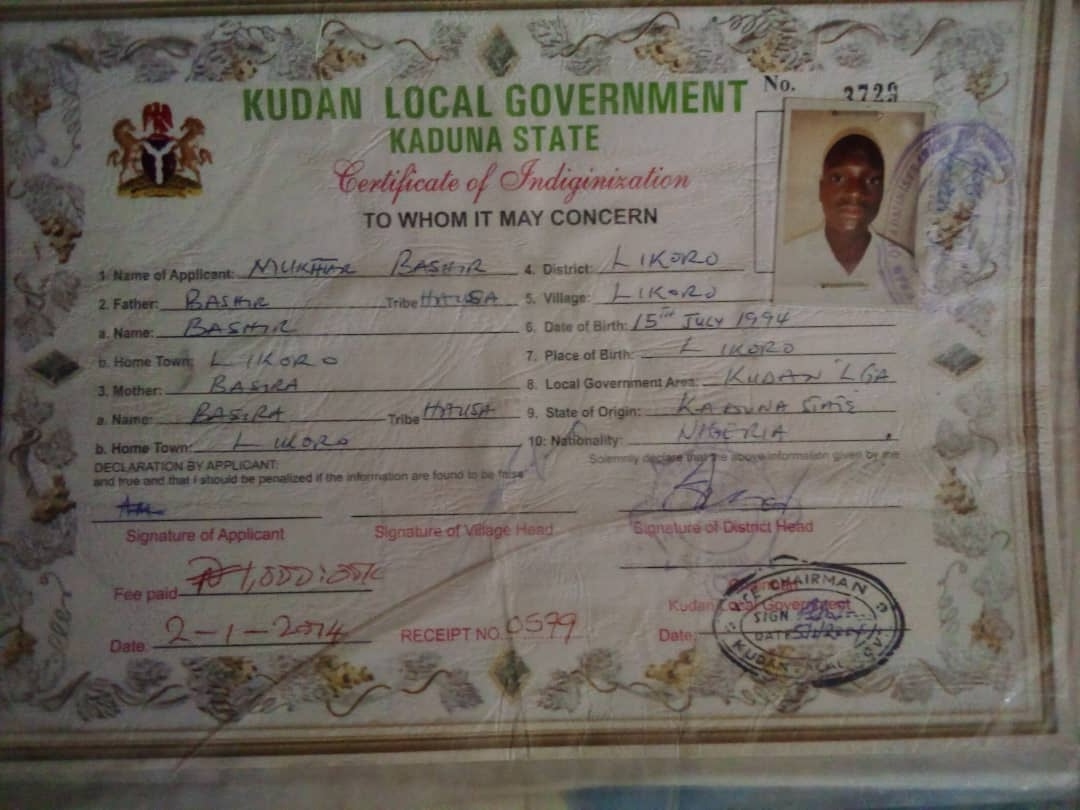 No. 3729
KUDAN LOCAL GOVERNMENT
KADUNA STATE
Certificate of Indiginization
TO WHOM IT MAY CONCERN
1 Name of Applicant: MUKHTAR BASHIR
2. Father: BASHIR Tribe HAUSA
a. Name: BASHIR
b. Home Town: LIKORO
3. Mother: BASIRA
a. Name: BASIRA Tribe HAUSA
b. Home Town: LIKORO
4. District: LIKORO
5. Village: LIKORO
6. Date of Birth: 15TH JULY 1994
7. Place of Birth: LIKORO
8. Local Government Area: KUDAN LGA
9. State of Origin: KADUNA STATE
10: Nationality: NIGERIA
DECLARATION BY APPLICANT: Solemnly declare that the above information given by me
and true and that I should be penalized if the information are found to be false
Signature of Applicant Signature of Village Head Signature of District Head
Fee paid ₦1,000:00K
Chairman
Kudan Local Government
Date: 2-1-2014 RECEIPT NO. 0599 Date:
CHAIRMAN
SIGN
DATE
KUDAN LOCAL GOVT